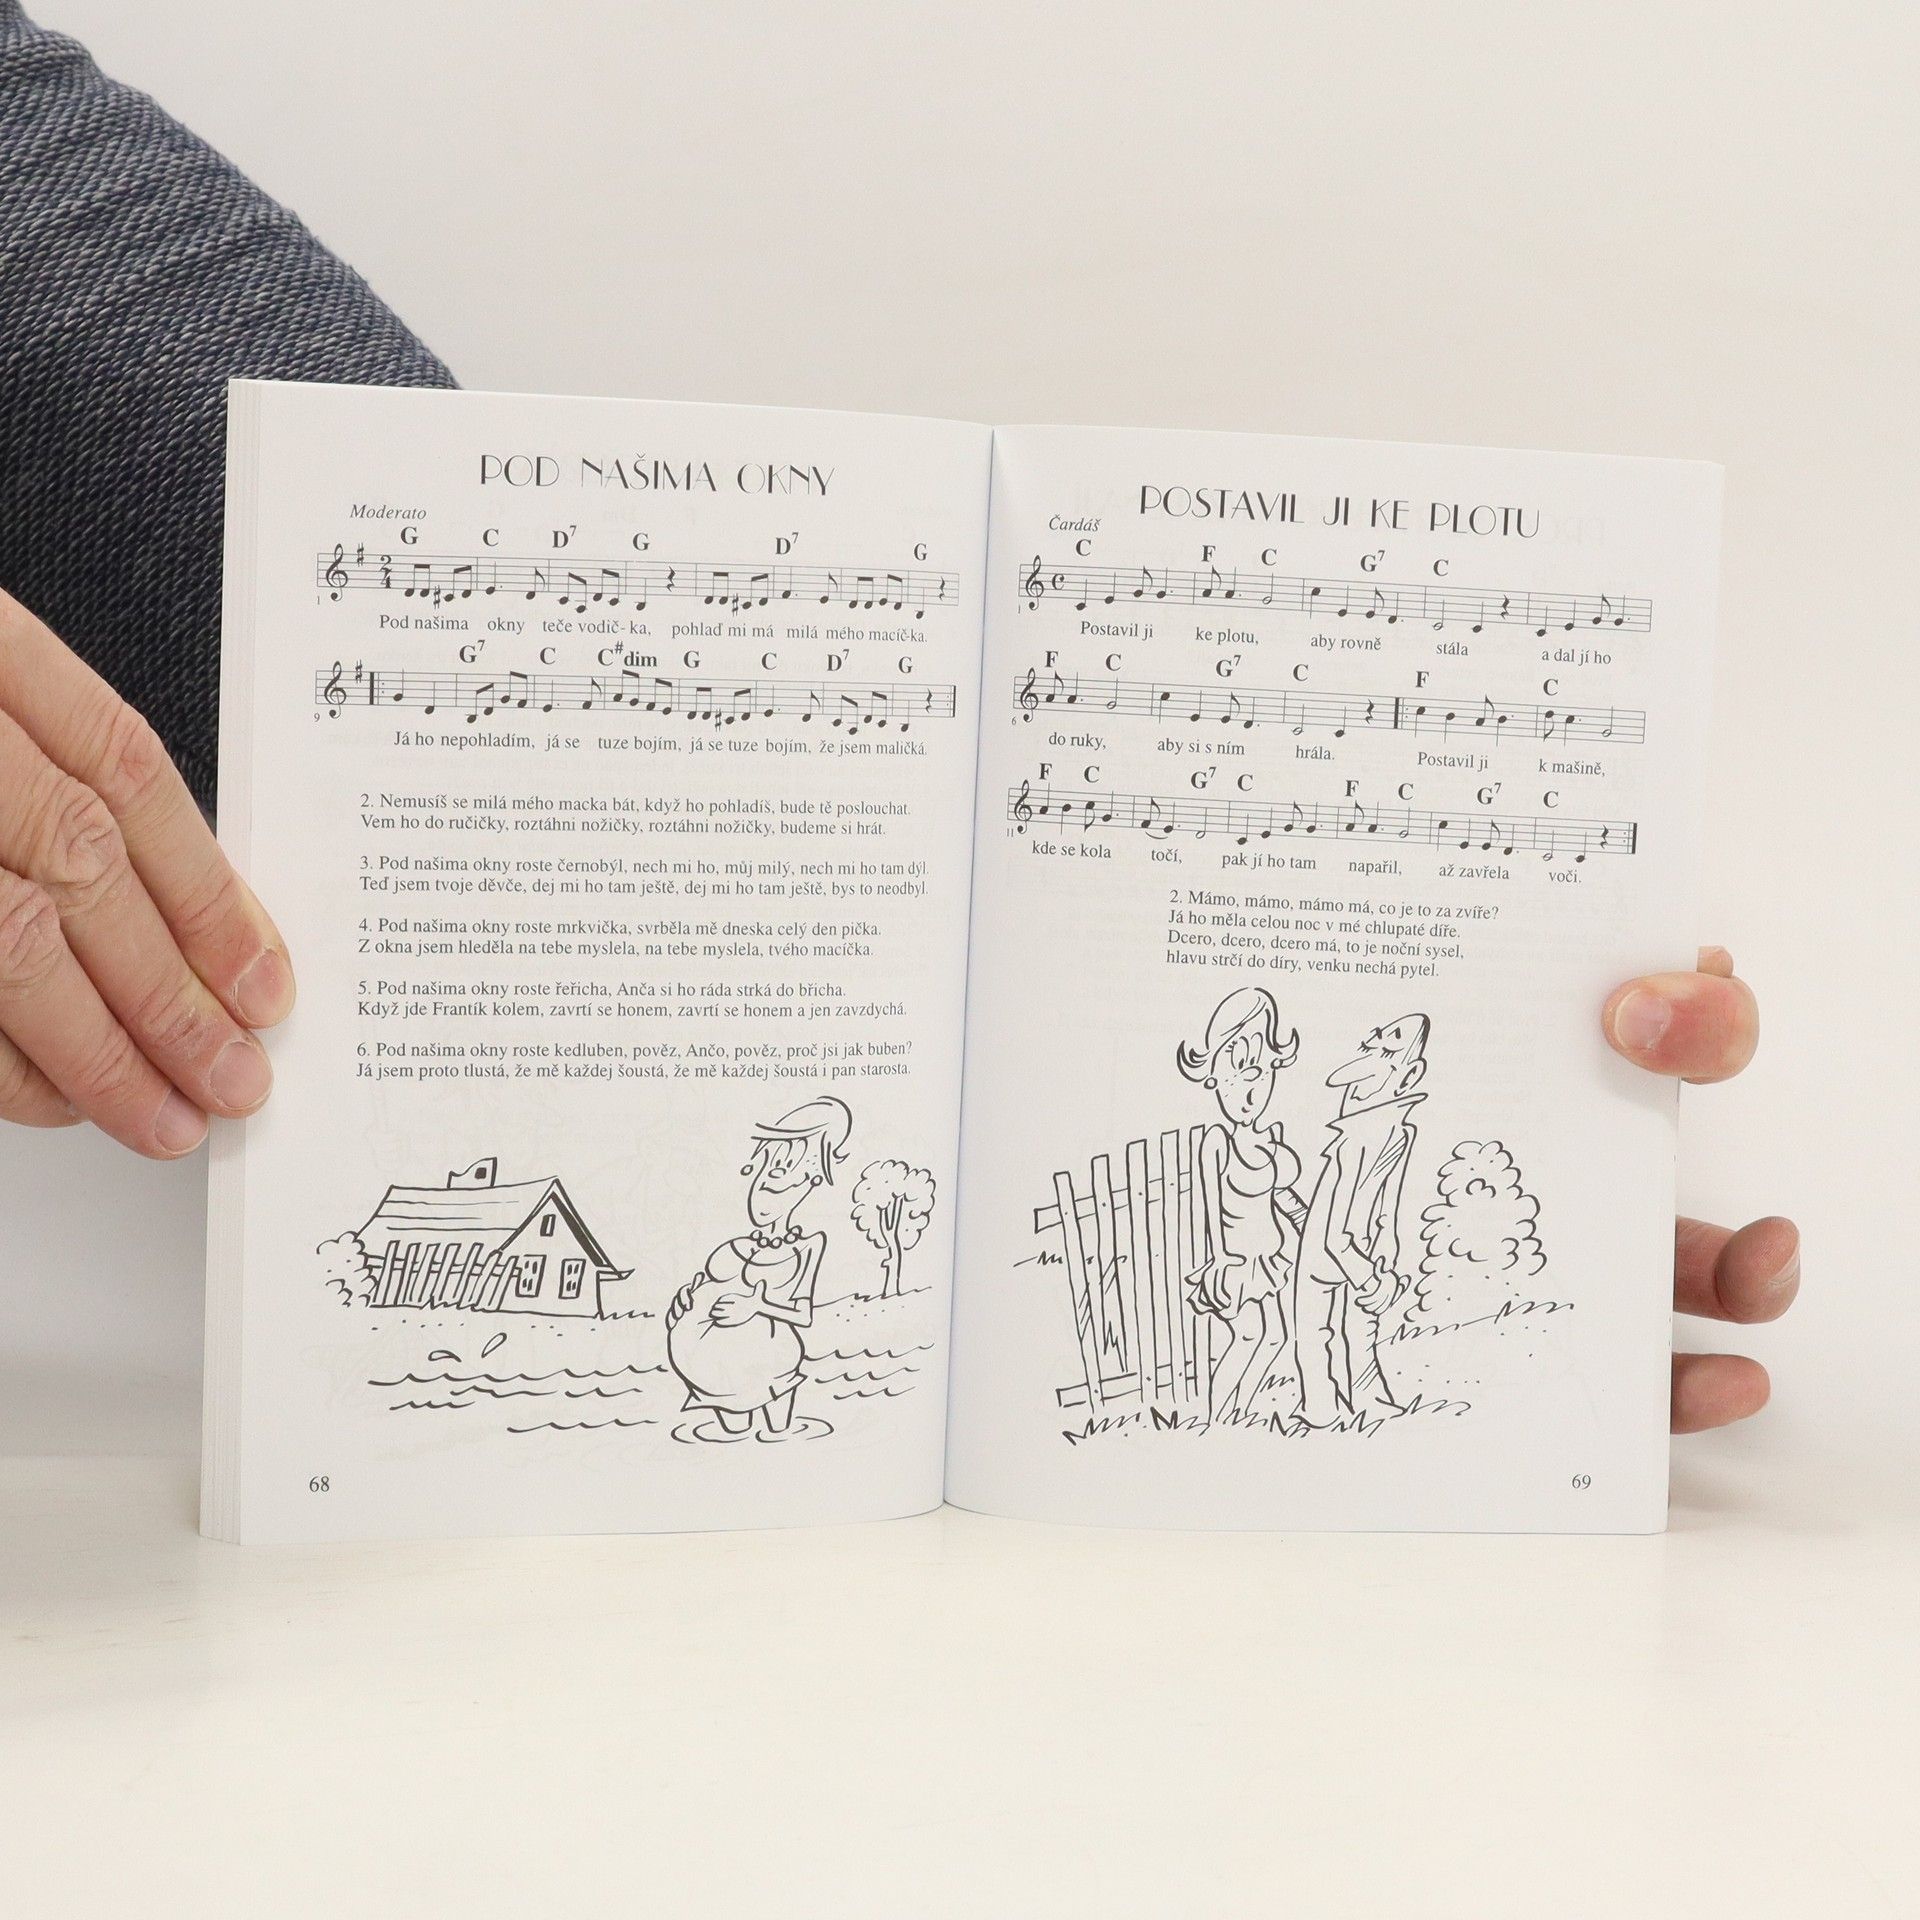 POD NAŠIMA OKNY
Moderato
G C D7 G D7 G
2 4
1
Pod našima okny teče vodič-ka, pohlaď mi má milá mého macíč-ka.
G7 C C#dim G C D7 G
9
Já ho nepohladím, já se tuze bojím, já se tuze bojím, že jsem maličká.
2. Nemusíš se milá mého macka bát, když ho pohladíš, bude tě poslouchat.
Vem ho do ručičky, roztáhni nožičky, roztáhni nožičky, budeme si hrát.
3. Pod našima okny roste černobýl, nech mi ho, můj milý, nech mi ho tam dýl.
Teď jsem tvoje děvče, dej mi ho tam ještě, dej mi ho tam ještě, bys to neodbyl.
4. Pod našima okny roste mrkvička, svrběla mě dneska celý den pička.
Z okna jsem hleděla na tebe myslela, na tebe myslela, tvého macíčka.
5. Pod našima okny roste řeřicha, Anča si ho ráda strká do břicha.
Když jde Frantík kolem, zavrtí se honem, zavrtí se honem a jen zavzdychá.
6. Pod našima okny roste kedluben, pověz, Ančo, pověz, proč jsi jak buben?
Já jsem proto tlustá, že mě každej šoustá, že mě každej šoustá i pan starosta.
68
POSTAVIL JI KE PLOTU
Čardáš
C F C G7 C
1
Postavil ji ke plotu, aby rovně stála a dal jí ho
F C G7 C F C
6
do ruky, aby si s ním hrála. Postavil ji k mašině,
F C G7 C F C G7 C
11
kde se kola točí, pak jí ho tam napařil, až zavřela voči.
2. Mámo, mámo, mámo má, co je to za zvíře?
Já ho měla celou noc v mé chlupaté díře.
Dcero, dcero, dcero má, to je noční sysel,
hlavu strčí do díry, venku nechá pytel.
69